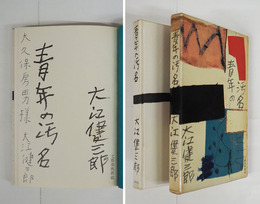 青年の汚名
大江健三郎
大久保房男様
大江健三郎
青年の汚名
大江健三郎
青年の
汚名
大江健三郎